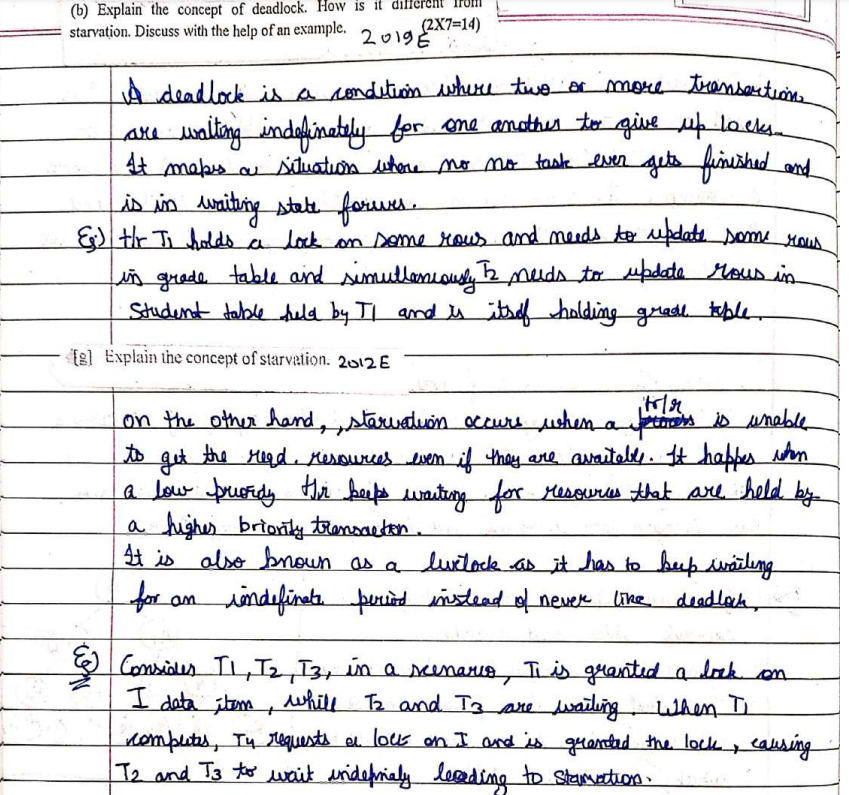 (b) Explain the concept of deadlock. How is it different from
starvation. Discuss with the help of an example. (2X7=14)
2019E
A deadlock is a condition where two or more transaction
are waiting indefinately for one another to give up locks.
It makes a situation where no no task ever gets finished and
is in waiting state forever.
Eg:) t/r T1 holds a lock on some rows and needs to update some rows
in grade table and simultaneously T2 needs to update rows in
Student table held by T1 and is itself holding grade table.
[g] Explain the concept of starvation. 2012E
tr/r
on the other hand, , starvation occurs when a process is unable
to get the reqd. resources even if they are available. It happes when
a low priority t/r keeps waiting for resources that are held by
a higher priority transaction.
It is also known as a livelock as it has to keep waiting
for an indefinate period instead of never like deadlock.
Eg) Consider T1, T2, T3, in a scenario, T1 is granted a lock on
I data item, while T2 and T3 are waiting. When T1
completes, T4 requests a lock on I and is granted the lock, causing
T2 and T3 to wait indefinialy leading to starvation.